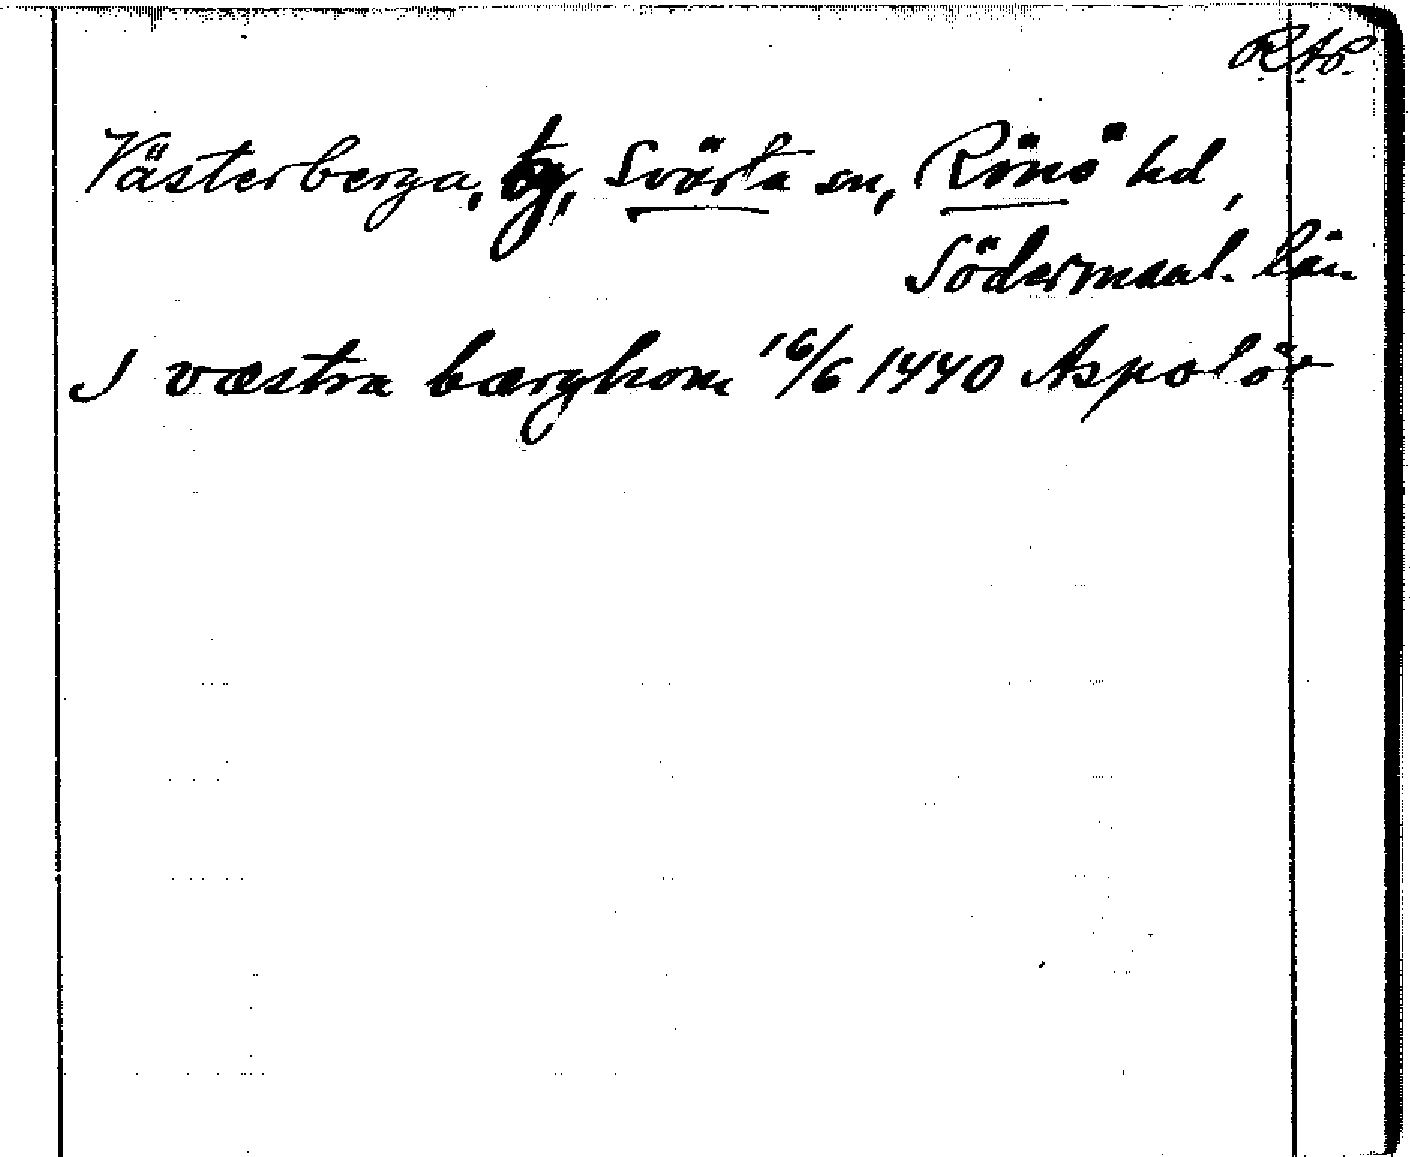 RAp.
Västerberga, by, Svärta sn, Rönö hd,
Södermanl. län
I væstra bærghom 16/6 1440 Aspolöt